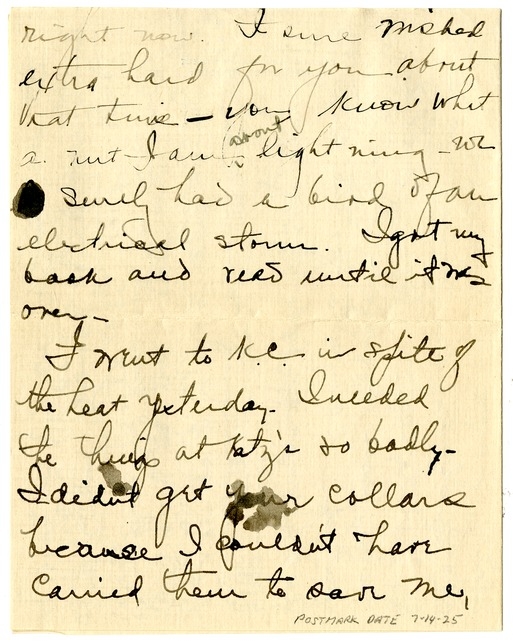 right now. I sure wished
extra hard for you about
that time — you know what
a nut I am about lightning - we
surely had a bird of an
electrical storm. I got my
book and read until it was
over -
I went to K.C. in spite of
the heat yesterday. I needed
the things at Katz's so badly -
I didn't get your collars
because I couldn't have
carried them to save me,
POSTMARK DATE 7-14-25